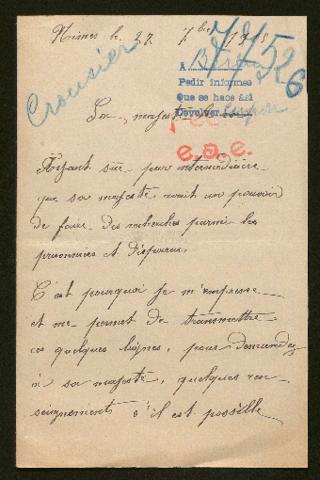 Nimes le 27 7bre 1915
78/526
Crousier
A Berlin
Pedir informes
Que se hace así
Devolver
Sa majesté
e.a.e.
Ayant sue par intermédiaire
que sa majesté avait un pouvoir
de faire des recherches parmi les
prisonniers et disparus.
C'est pourquoi je m'empresse
et me permet de transmettre
ces quelques lignes, pour demandez
à sa majesté, quelques ren-
seignements s'il est possible